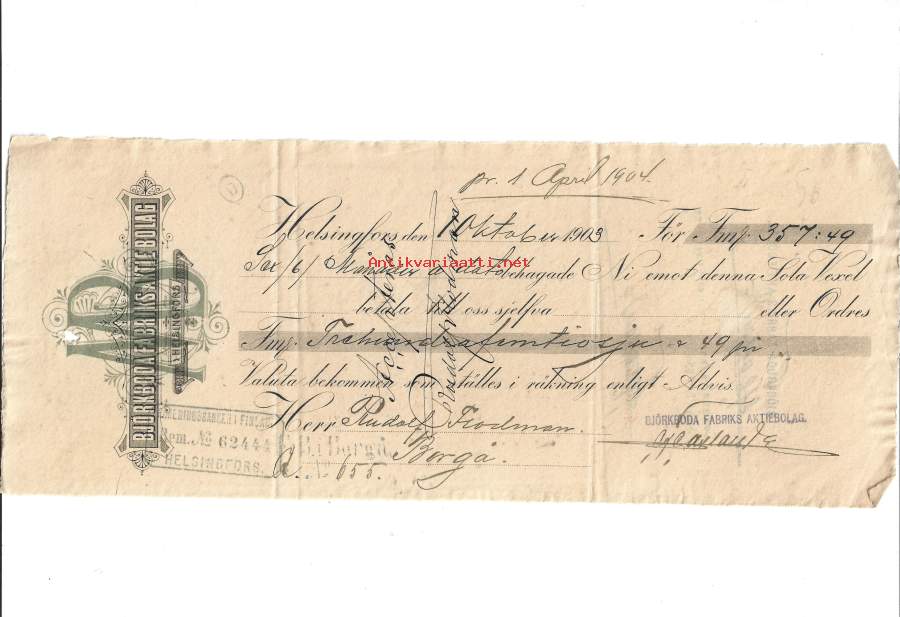 pr. 1 April 1904.
Helsingfors den 1 Oktober 1903 För Fmk 357:49
Sex /6/ Månader a dato behagade Ni emot denna Sola Vexel
betala till oss sjelfva eller Ordres
Fmk. Trehundrafemtiosju & 49 pi
Valuta bekommen som ställes i räkning enligt Advis.
Herr Rudolf Frodman.
Borgå.
BJÖRKBODA FABRIKS AKTIEBOLAG.
BJÖRKBODA FABRIKS AKTIEBOLAG
HELSINGFORS
FÖRENINGSBANKEN I FINLAND
Rem. № 62444
HELSINGFORS.
F.B. i Borgå
№ 655.
Antikvariaatti.net